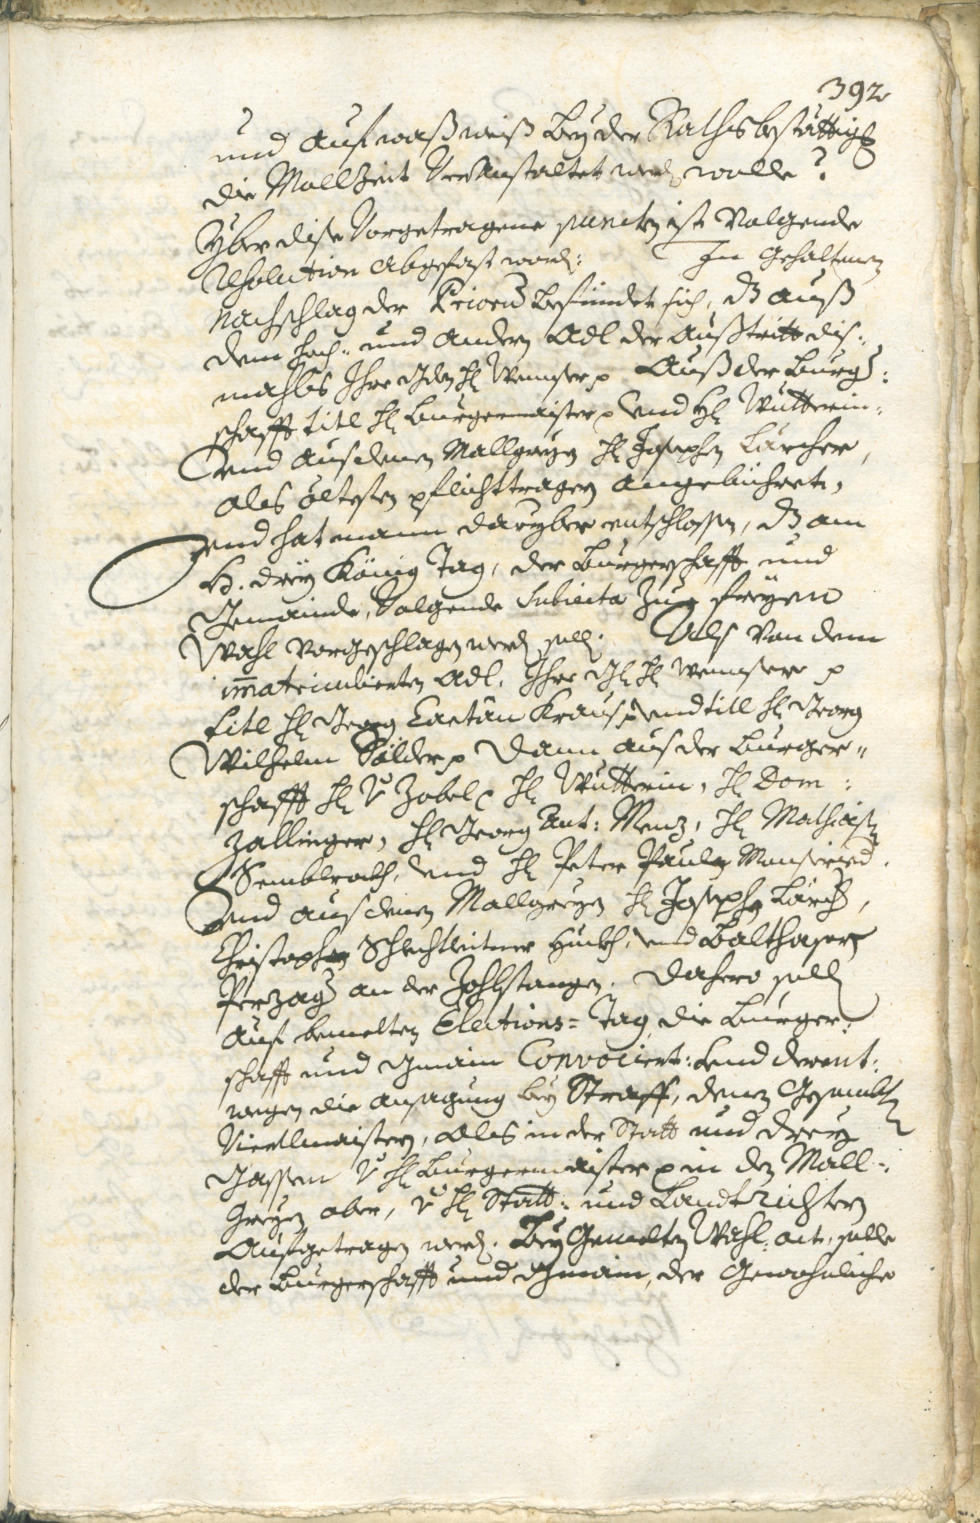 392
und auf waß weiß bey der Rathsbestättig
die Mallzeit veranstaltet werd wolle?
Yber dise vorgetragene puncten ist volgende
Resolution abgefast word: In gehaltenen
nachschlag der Priorn befündet sich, dz auß
dem hoch- und andern Adl der Außtritt dis:
mahls Ihro Gdn H Wenser p Auß der Burger:
schafft titl H Burgermaister p vnd H Wutterin:
vnd aus denen Mallgreyen H Josephen Lärcher,
als öltesten pflichttragen angebühret,
vnd hat mann daryber entschlossen, dz am
H. dreÿ König Tag, der Burgerschafft und
Gemainde, volgende Subiecta zur freyen
Wahl vorgeschlagen werd soll: Als von dem
im̄atriculierten Adl, Ihro H H Wenser p
titl H Georg Caetan Kraus p vnd titl H Georg
Wilhelm Sölder p dann aus der Burger-
schafft H v Zobel p H Wutterin, H Dom:
Zallinger, H Georg Ant: Menz, H Mathias
Semblroth, vnd H Peter Paul
vnd aus denen Mallgreyen H Joseph Lärch,
Christophen Schlechtleitner Huebh, vnd Balthasarn
Perzag an der Zohlstangen. Dahero soll
auf bemelten Elections-Tag die Burger:
schafft und Gmain Convociert: vnd derent:
wegen die ansagung bey Straff, denen Gesambten
Viertlmaistern, als in der Statt und dreyen
Gassen v H Burgermaister p in den Mall-
greyen aber, v H Statt- und Landtrichtern
Aufgetragen werd. Bey Gemelten Wahl-act, solle
der Burgerschafft und Gmain, der Gewohnliche